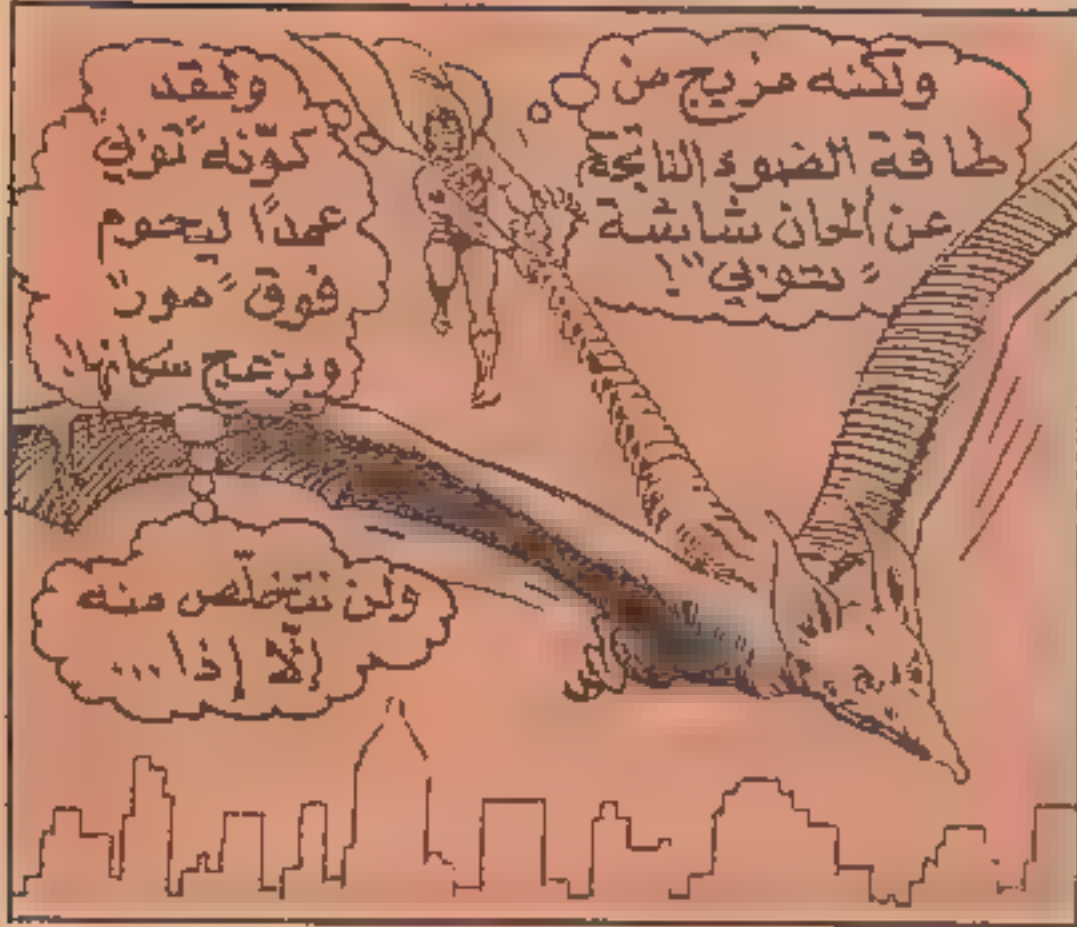 ولكنه مزيج من
طاقة الضوء الناتجة
عن ألحان شاشة
"بتوني"!
ولقد
كوّنه "توني"
عمدًا ليحوم
فوق "مور"
ويزعج سكانها!
ولن نتخلص منه
إلّا إذا...